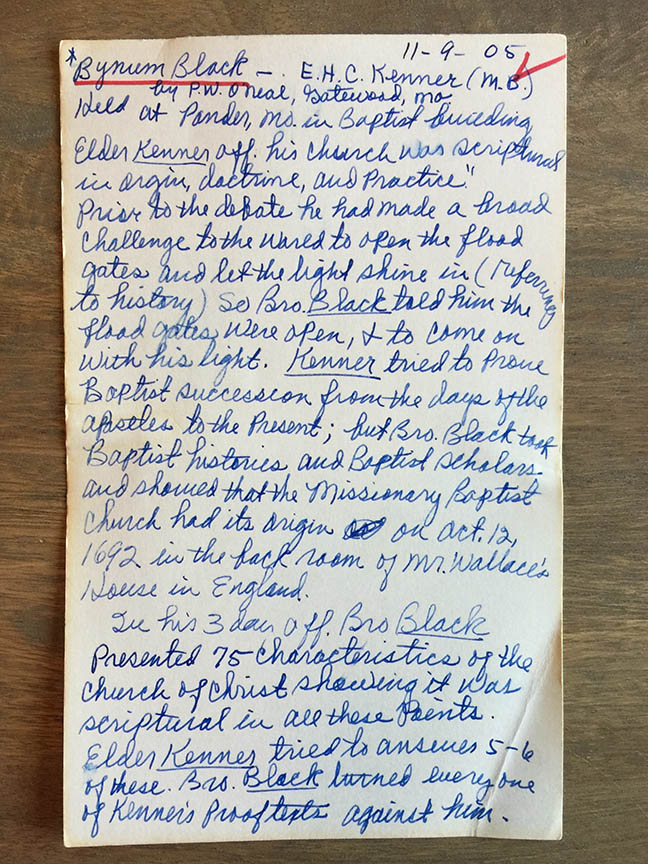 11-9-05
*Bynum Black - E.H.C. Kenner (M.B.)
by P.W. O'Neal, Gatewood, Mo.
Held at Pander, Mo. in Baptist building
Elder Kenner aff. his church was scriptural
in origin, doctrine, and Practice."
Prior to the debate he had made a broad
challenge to the world to open the flood
gates and let the light shine in (referring
to history) So Bro. Black told him the
flood gates were open, & to come on
with his light. Kenner tried to Prove
Baptist succession from the days of the
apostles to the Present; but Bro. Black took
Baptist histories and Baptist scholars
and showed that the Missionary Baptist
church had its origin on Oct. 12,
1692 in the back room of Mr. Wallace's
House in England.
In his 3 days aff. Bro Black
Presented 75 characteristics of the
church of Christ showing it was
scriptural in all these Points.
Elder Kenner tried to answer 5-6
of these. Bro. Black turned every one
of Kenner's Prooftexts against him.